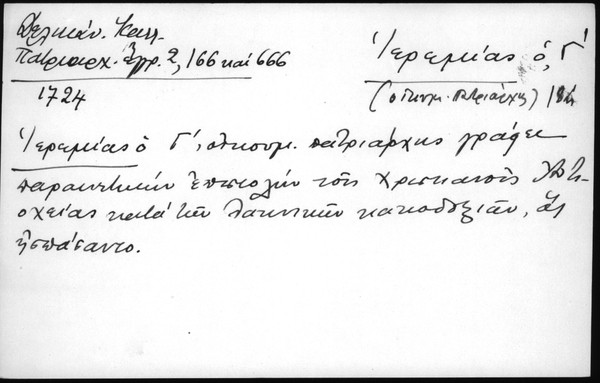 Δελικάν. Καλλ.
Πατριαρχ. Ἔγγρ. 2, 166 καί 666
1724
Ἱερεμίας ὁ, Γ´
(οἰκουμ. Πατριάρχης)
Ἱερεμίας ὁ Γ´, οἰκουμ. πατριάρχης γράφει
παραινετικήν ἐπιστολήν τοῖς Χριστιανοῖς Ἀντι-
οχείας κατά τῶν λατινικῶν κακοδοξιῶν, ἅς
ἠσπάσαντο.